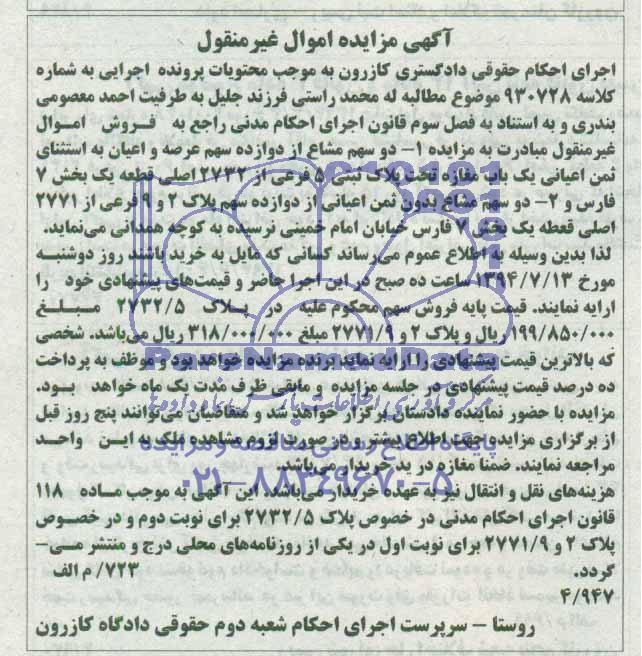 آگهی مزایده اموال غیرمنقول
اجرای احکام حقوقی دادگستری کازرون به موجب محتویات پرونده اجرایی به شماره
کلاسه ۹۳۰۷۲۸ موضوع مطالبه له محمد راستی فرزند جلیل به طرفیت احمد معصومی
بندری و به استناد به فصل سوم قانون اجرای احکام مدنی راجع به فروش اموال
غیرمنقول مبادرت به مزایده ۱- دو سهم مشاع از دوازده سهم عرصه و اعیان به استثنای
ثمن اعیانی یک باب مغازه تحت پلاک ثبتی ۵ فرعی از ۲۷۳۲ اصلی قطعه یک بخش ۷
فارس و ۲- دو سهم مشاع بدون ثمن اعیانی از دوازده سهم پلاک ۲ و ۹ فرعی از ۲۷۷۱
اصلی قعطه یک بخش ۷ فارس خیابان امام خمینی نرسیده به کوچه همدانی می‌نماید.
لذا بدین وسیله به اطلاع عموم می‌رساند کسانی که مایل به خرید باشند روز دوشنبه
مورخ ۱۳۹۴/۷/۱۳ ساعت ده صبح در این اجرا حاضر و قیمت‌های پیشنهادی خود را
ارایه نمایند. قیمت پایه فروش سهم محکوم علیه در پلاک ۲۷۳۲/۵ مبلغ
۱۹۹/۸۵۰/۰۰۰ ریال و پلاک ۲ و ۲۷۷۱/۹ مبلغ ۳۱۸/۰۰۰/۰۰۰ ریال می‌باشد. شخصی
که بالاترین قیمت پیشنهادی را ارایه نماید برنده مزایده خواهد بود و موظف به پرداخت
ده درصد قیمت پیشنهادی در جلسه مزایده و مابقی ظرف مدت یک ماه خواهد بود.
مزایده با حضور نماینده دادستان برگزار خواهد شد و متقاضیان می‌توانند پنج روز قبل
از برگزاری مزایده جهت اطلاع بیشتر و در صورت لزوم مشاهده ملک به این واحد
مراجعه نمایند. ضمنا مغازه در ید خریدار می‌باشد.
هزینه‌های نقل و انتقال نیز به عهده خریدار می‌باشد. این آگهی به موجب ماده ۱۱۸
قانون اجرای احکام مدنی در خصوص پلاک ۲۷۳۲/۵ برای نوبت دوم و در خصوص
پلاک ۲ و ۲۷۷۱/۹ برای نوبت اول در یکی از روزنامه‌های محلی درج و منتشر می-
گردد.
۷۲۳/ م الف
۴/۹۴۷
روستا – سرپرست اجرای احکام شعبه دوم حقوقی دادگاه کازرون
ParsNamadData
پایگاه اطلاع رسانی مناقصه و مزایده
۰۲۱-۸۸۳۴۹۶۷۰-۵